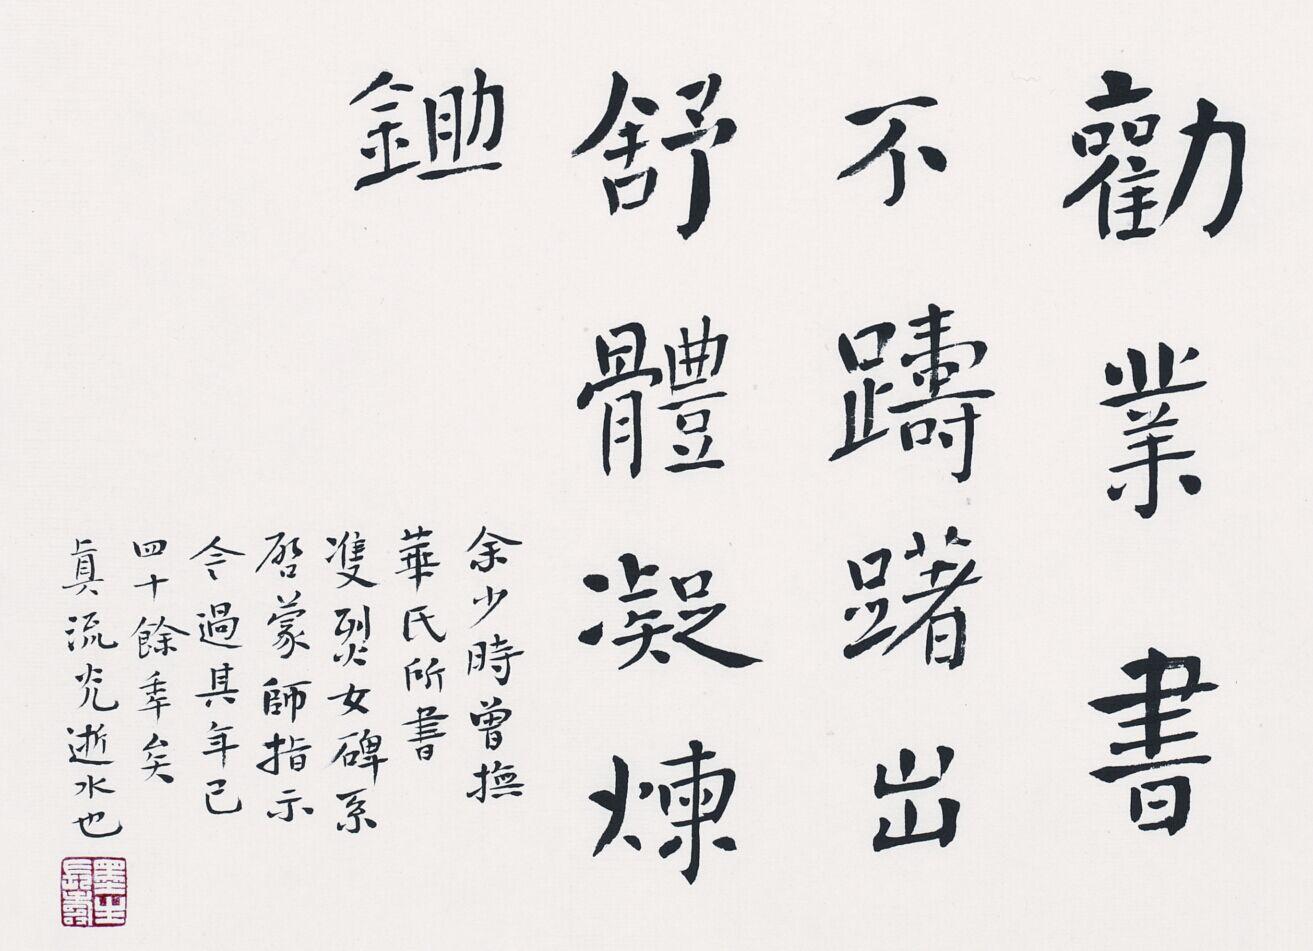 勸業書
不躊躇出
舒體凝煉
鋤
余少時曾撫
華氏所書
雙烈女碑系
啓蒙師指示
今過其年已
四十餘年矣
眞流光逝水也
墨生
長壽